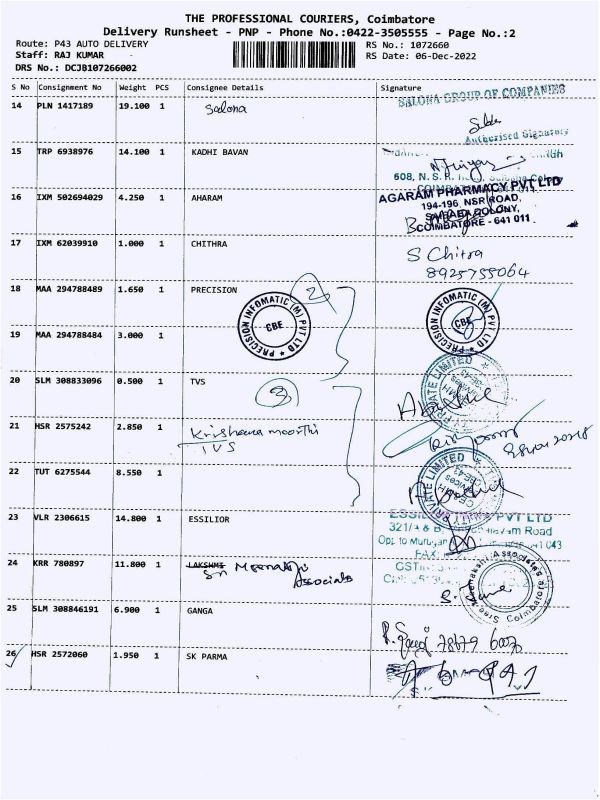 THE PROFESSIONAL COURIERS, Coimbatore
Delivery Runsheet - PNP - Phone No.:0422-3505555 - Page No.:2
Route: P43 AUTO DELIVERY RS No.: 1072660
Staff: RAJ KUMAR RS Date: 06-Dec-2022
DRS No.: DCJB107266002
S No Consignment No Weight PCS Consignee Details Signature
SALONA GROUP OF COMPANIES
14 PLN 1417189 19.100 1 Salona
Authorised Signatory
15 TRP 6938976 14.100 1 KADHI BAVAN
608, N. S. R.
16 IXM 502694029 4.250 1 AHARAM AGARAM PHARMACY PVT LTD
194-196, NSR ROAD,
SAIBABA COLONY,
COIMBATORE - 641 011
17 IXM 62039910 1.000 1 CHITHRA S Chitra
8925755064
18 MAA 294788489 1.650 1 PRECISION 2
PRECISION INFOMATIC (M) PVT LTD CBE PRECISION INFOMATIC (M) PVT LTD CBE
19 MAA 294788484 3.000 1
20 SLM 308833096 0.500 1 TVS 3 PRIVATE LIMITED
21 HSR 2575242 2.850 1 Krishna moorthi
TVS
22 TUT 6275544 8.550 1 PRIVATE LIMITED
23 VLR 2306615 14.800 1 ESSILIOR PVT LTD
321/A & B Road
24 KRR 780897 11.800 1 LAKSHMI Sri Meenakshi Associates
25 SLM 308846191 6.900 1 GANGA
26 HSR 2572060 1.950 1 SK PARMA